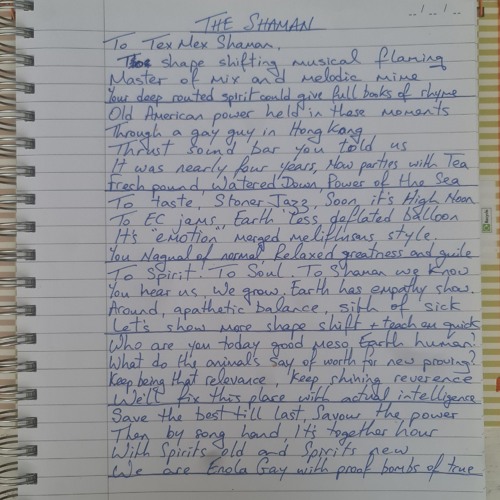 THE SHAMAN
To TexMex Shaman,
shape shifting musical flaming
Master of mix and melodic mime
Your deep routed spirit could give full books of rhyme
Old American power held in these moments
Through a gay guy in Hong Kong
Thrust sound bar you told us
It was nearly four years, Now parties with Tea
Fresh pound, Watered Down, Power of the Sea
To taste, Stoner Jazz, Soon, it's High Noon
To EC jams, Earth less deflated balloon
It's "emotion" merged melifluous style.
You Nagual of normal, Relaxed greatness and guile
To Spirit. To Soul. To Shaman we know
You hear us. We grow. Earth has empathy show.
Around, apathetic balance, sith of sick
Let's show more shape shift + teach em quick
Who are you today good Meso Earth human?
What do the animals say of worth for new proving?
Keep being that relevance, Keep shining reverence
We'll fix this place with actual intelligence
Save the best till last, Savour the power
Then by song, hand, It's together hour
With Spirits old and Spirits new
We are Enola Gay with proof bombs of true